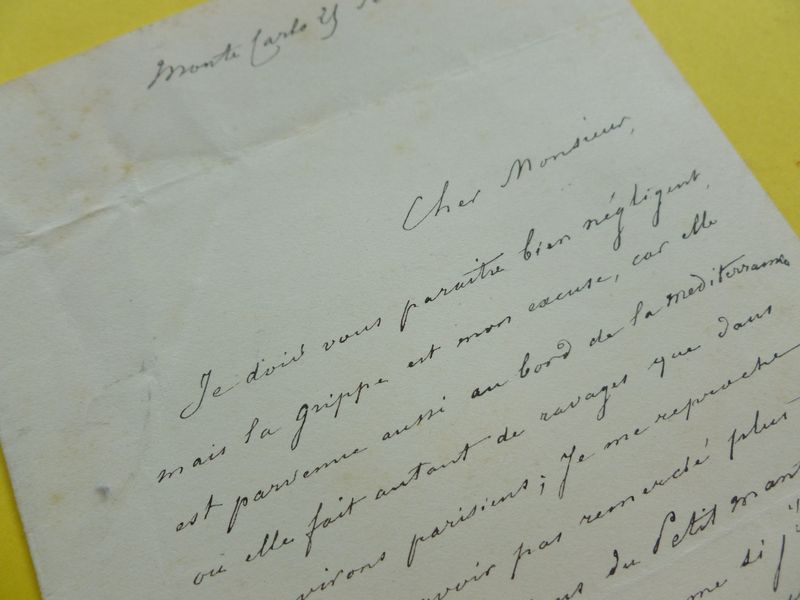 Monte Carlo 25
Cher Monsieur,
Je dois vous paraître bien négligent,
mais la grippe est mon excuse, car elle
est parvenue aussi au bord de la mediterranée
où elle fait autant de ravages que dans
virons parisiens; Je me reproche
voir pas remercié plus
du Petit mant
me si